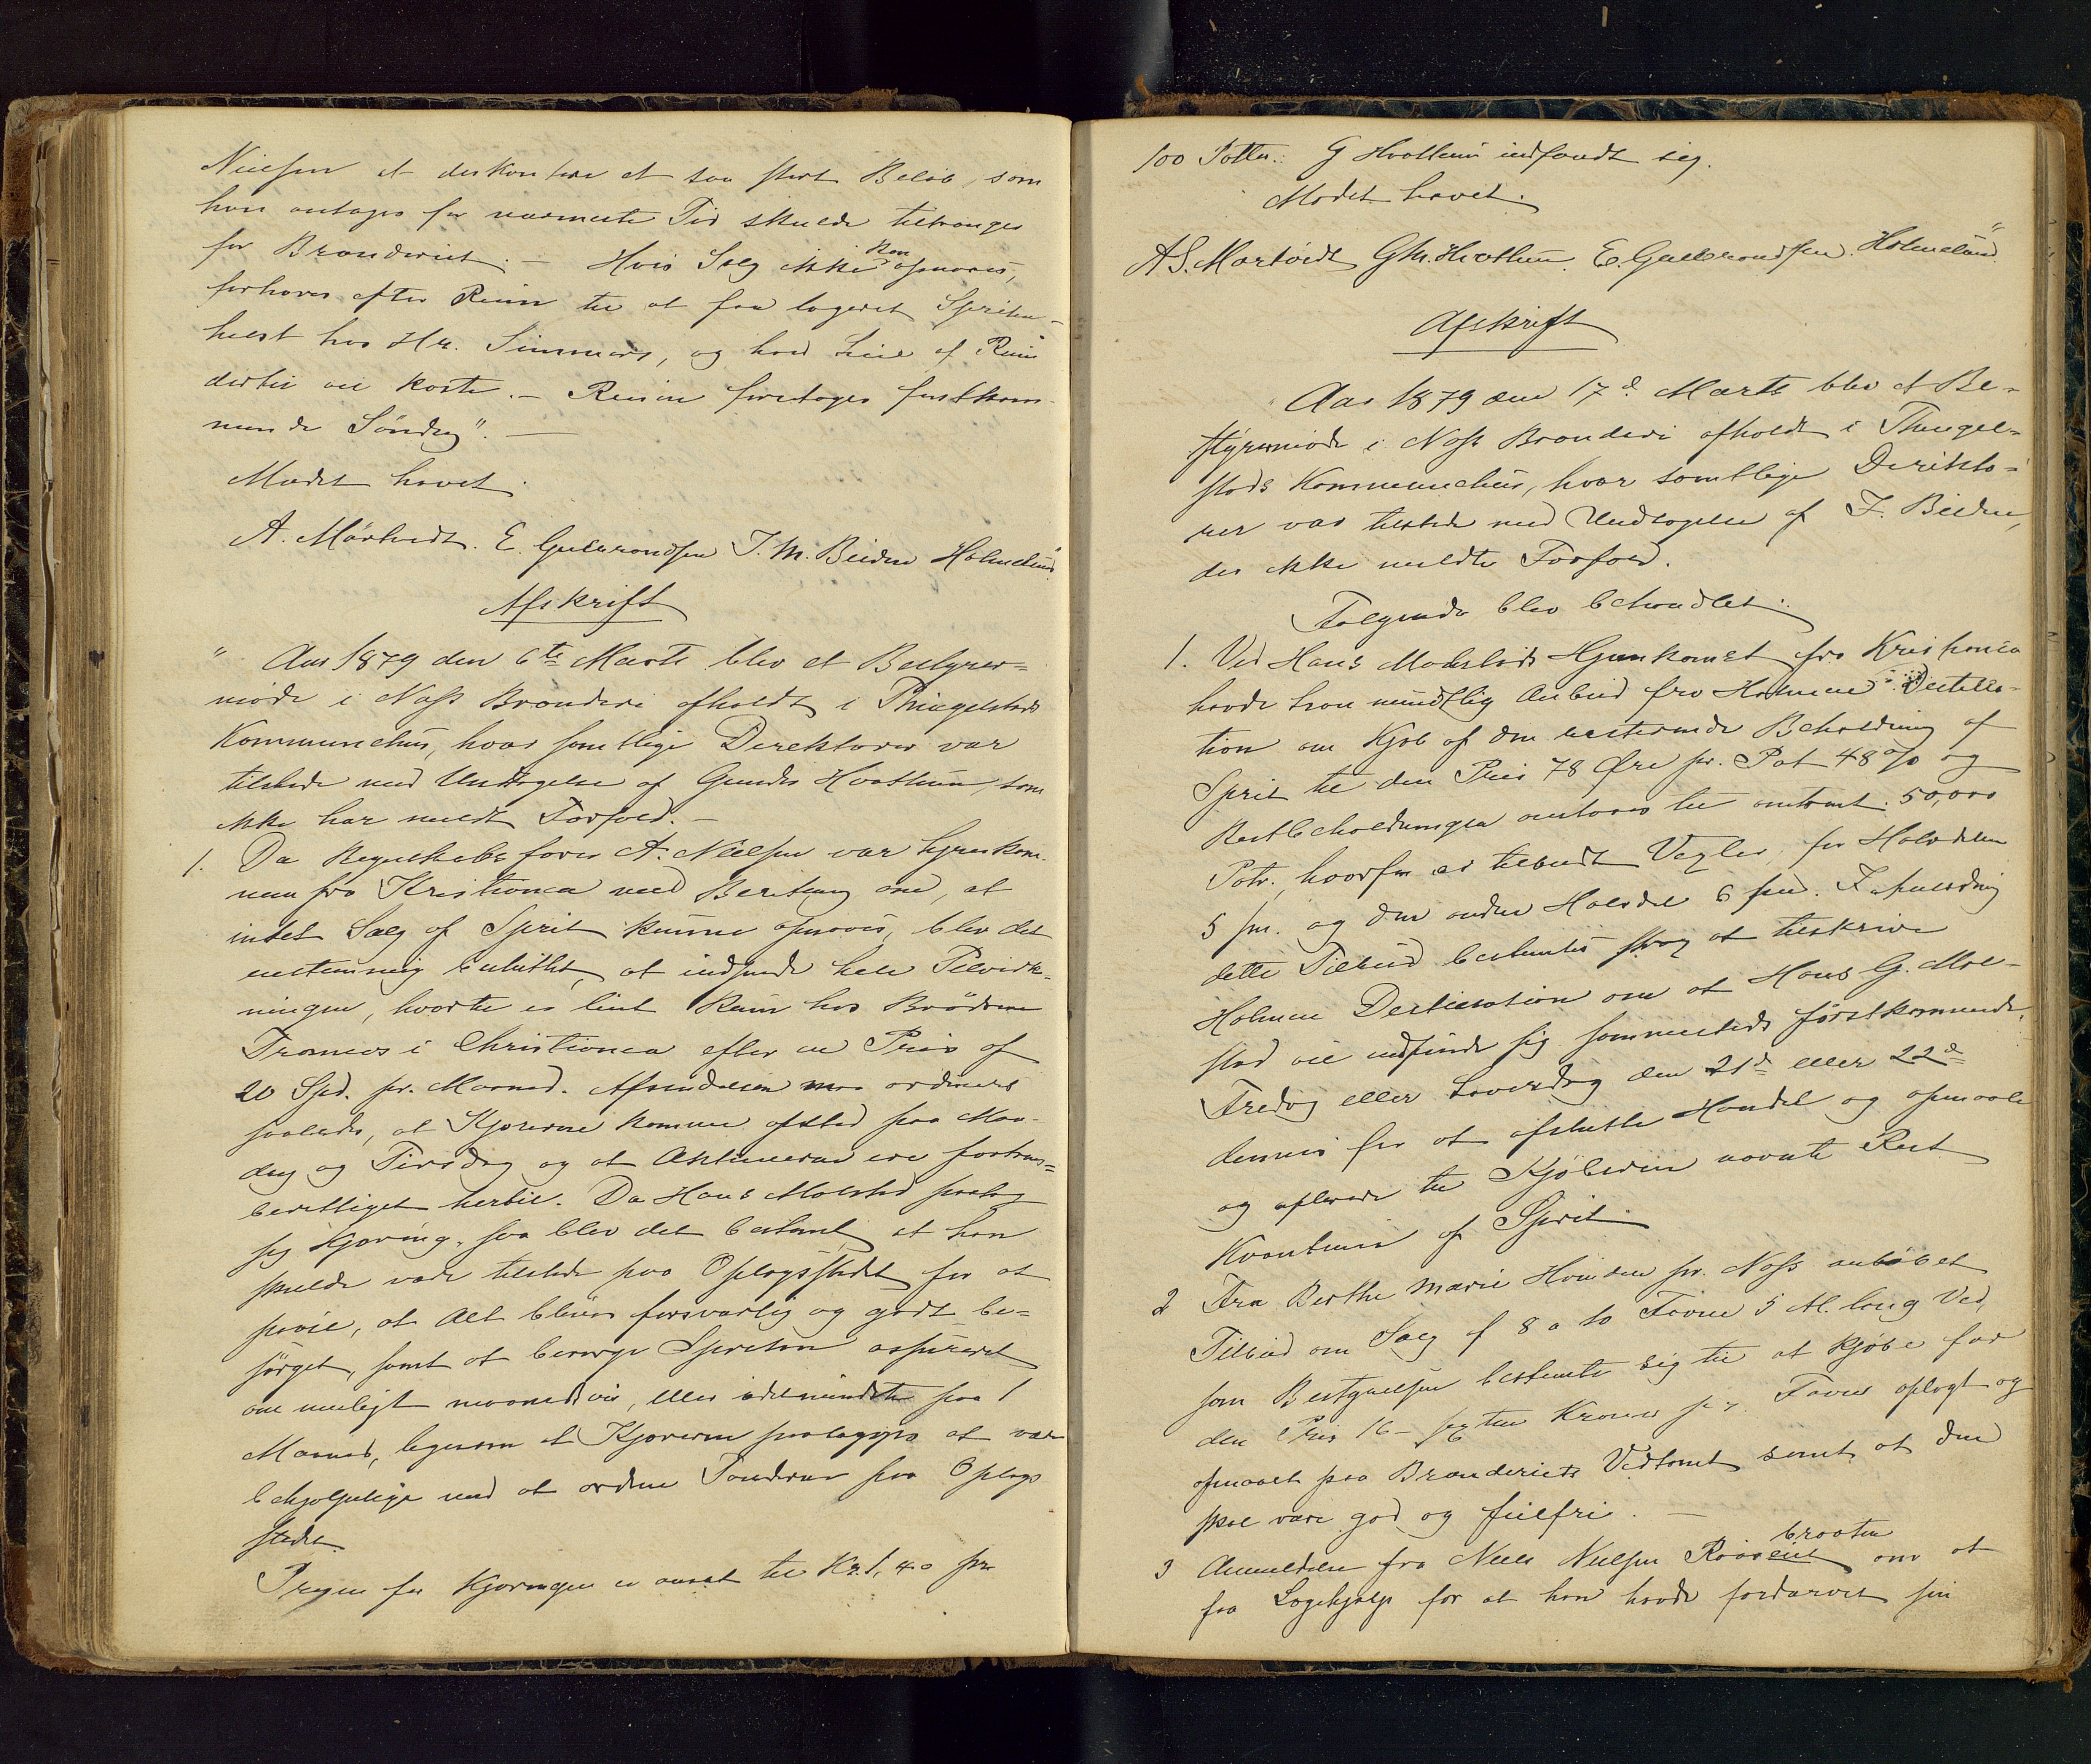 Nielsen at diskontere et saa stort Beløb, som
han antages for nærmeste Tid skulde tiltrænges
for Brænderiet. — Hvis Salg ikke kan opnaaes,
forhøres efter Rum til at faa lagret Spriten
helst hos Hr. Simmers, og hvad Leie af Rum
dertil vil koste. — Reisen foretages førstkom-
mende Söndag". —
Mödet hævet.
A. Mörtvedt. E. Gulbrandsen J. M. Bilden Holmelund
Afskrift
" Aar 1879 den 6te Marts blev et Bestyrer=
möde i Næss Brænderi afholdt i Thingelstads
Kommunehus, hvor samtlige Direktører var
tilstede med Undtagelse af Gunder Hvattum, som
ikke har meldt Forfald. —
1. Da Regnskabsfører A. Nielsen var hjemkom-
men fra Kristiania med Beretning om, at
intet Salg af Sprit kunne opnaaes, blev det
enstemmig besluttet, at indsende hele Tilvirk-
ningen, hvortil er leiet Rum hos Brödrene
Tromers i Christiania efter en Pris af
20 Spd. pr. Maaned. Afsendelsen maa ordineres
saaledes, at Kjørerne komme afsted paa Man-
dag og Tirsdag og at Aktieeierne ere fortrins=
berettiget hertil. Da Hans Molstad paatog
sig Kjøring, saa blev det bestemt, at han
skulde være tilstede paa Oplagsstedet for at
paase, at Alt bliver forsvarlig og godt be=
sørget, samt at besørge Spriten assureret
om muligt maanedsvis, eller idetmindste paa 1
Maaned, ligesom at Kjørerne paalægges at være
behjælpelige med at ordne Tønderne paa Oplags
stedet.
Prisen for Kjøringen er ansat til Kr. 1,40 pr
100 Potter. G Hvattum indfandt sig.
Mødet hævet.
A S. Mortvedt G M. Hvattum. E. Gulbrandsen. Holmelund"
Afskrift
" Aar 1879 den 17d Marts blev et Be-
styrermöde i Næss Brænderi afholdt i Thingel-
stads Kommunehus, hvor samtlige Direktö-
rer var tilstede med Undtagelse af J. Bilden,
der ikke meldte Forfald.
Følgende blev behandlet:
1. Ved Hans Molstads Hjemkomst fra Kristiania
havde han mundtlig Anbud fra Holmens Destilla-
tion om Kjøb af den resterende Beholdning af
Sprit til den Pris 78 Øre pr. Pot 48 % og
Restbeholdningen antages til omtrent 50,000
Potr., hvorfor er tilbudt Vexler, for Halvdelen
5 m. og den anden Halvdel 6 m. I Anledning
dette Tilbud bestemtes strax at tilskrive
Holmens Destillation om at Hans G. Mol-
stad vil indfinde sig sammesteds förstkommende
Fredag eller Løverdag den 21d eller 22d
dennes for at afslutte Handel og opmaale
og oplevere til Kjöberen nævnte Rest
Kvantum af Sprit.
2 Fra Berthe Marie Hvinden pr. Næss indløbet
Tilbud om Salg af 8 a 10 Favne 5 Al. lang Ved,
som Bestyrelsen bestemte sig til at kjøbe for
den Pris 16 – sexten Kroner pr. Favn oplagt og
opmaalt paa Brænderiets Vedtomt samt at den
skal være god og feilfri. —
3 Anmeldelse fra Niels Nielsen Raaseiebraaten om at
faa Lægehjælp for at han havde fordærvet sin